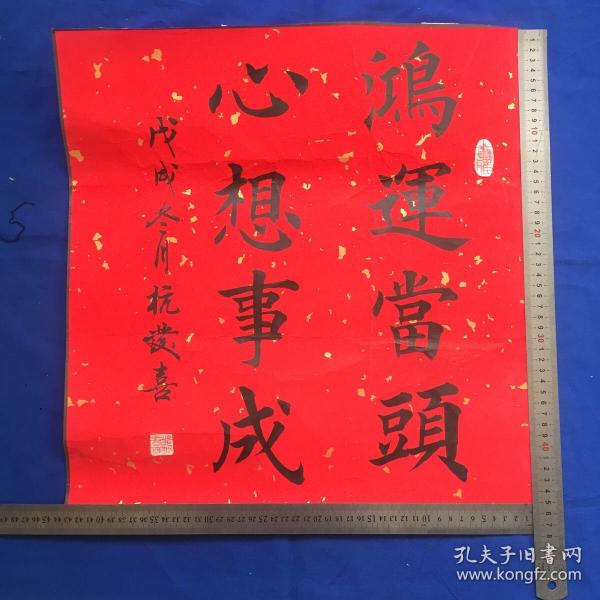 鴻運當頭
心想事成
戊戌冬月杭發喜
孔夫子旧书网
www.kongfz.com